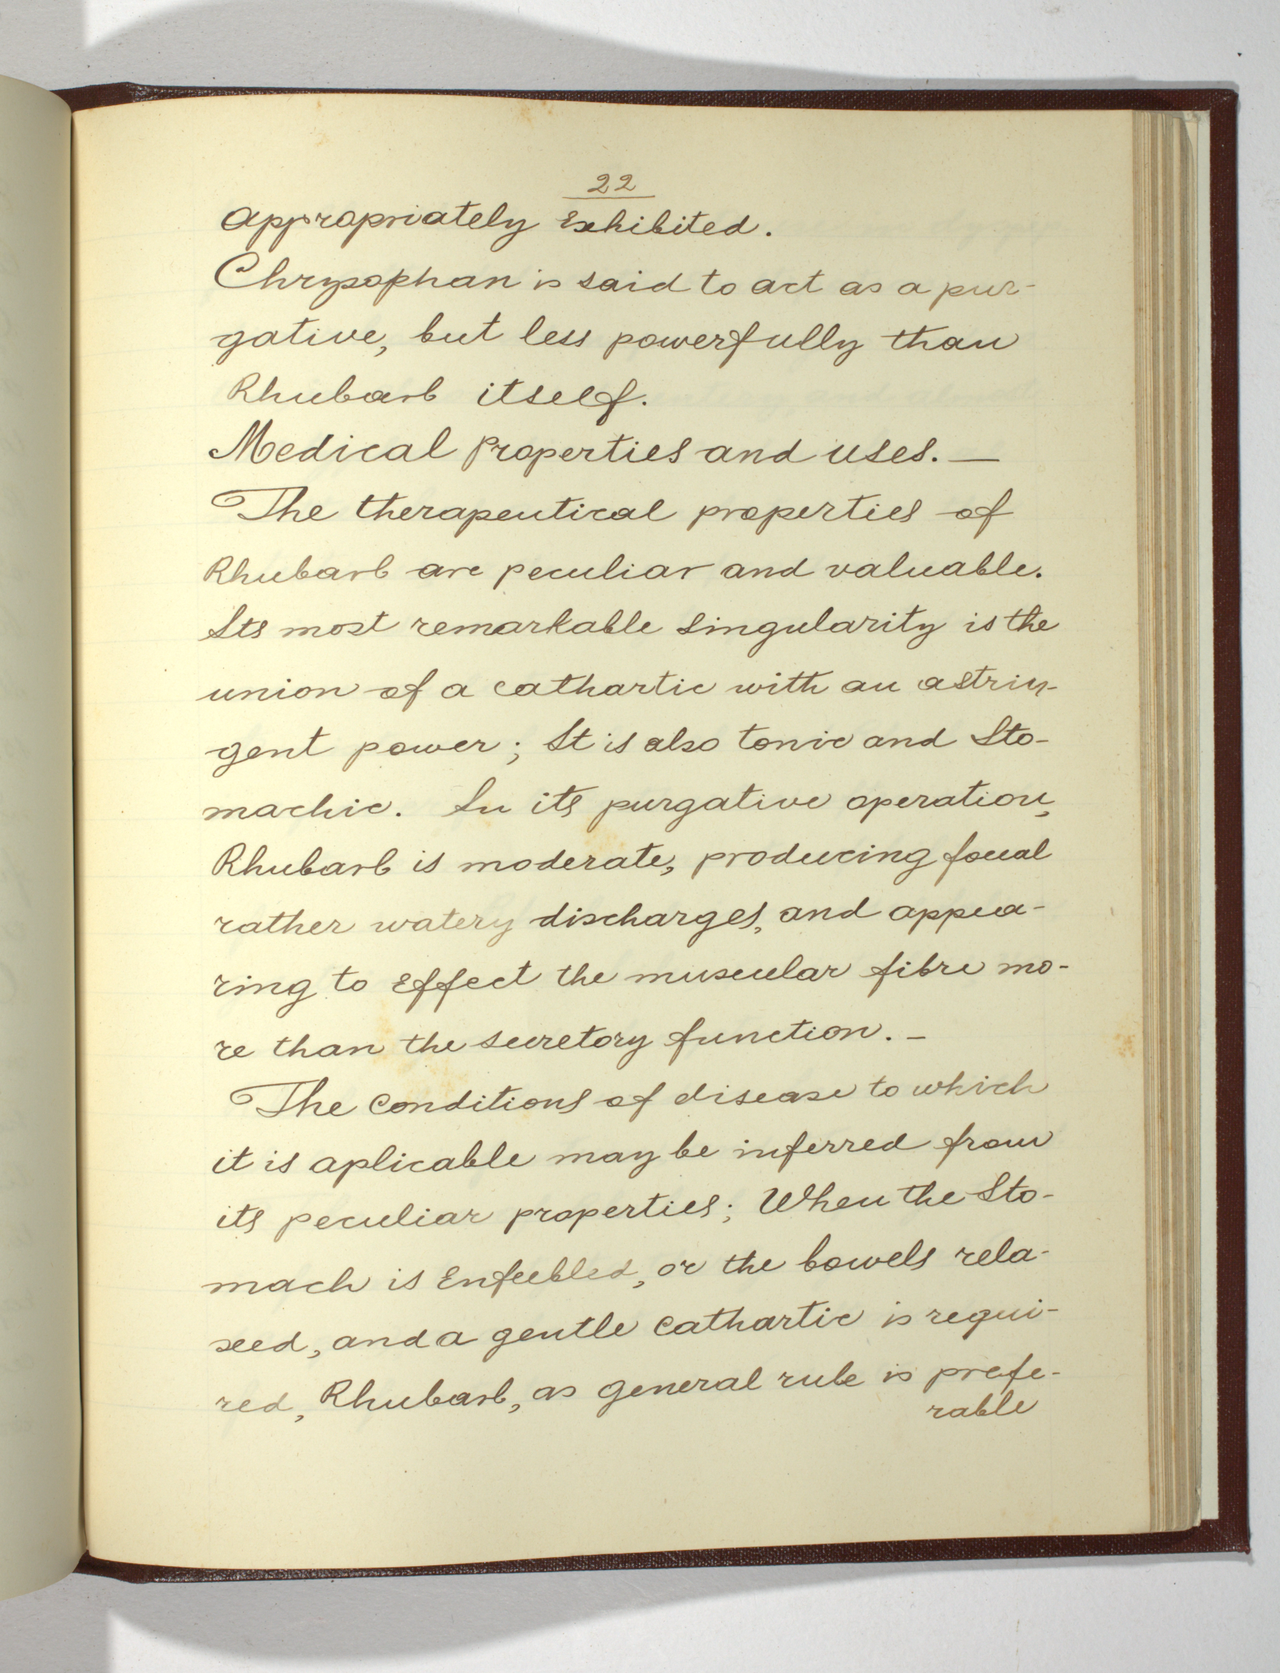 22
appropriately Exhibited.
Chrysophan is said to act as a pur-
gative, but less powerfully than
Rhubarb itself.
Medical Properties and uses. —
The therapeutical properties of
Rhubarb are peculiar and valuable.
Its most remarkable singularity is the
union of a cathartic with an astrin-
gent power; It is also tonic and Sto-
machic. In its purgative operation,
Rhubarb is moderate, producing foecal
rather watery discharges, and appea-
ring to Effect the muscular fibre mo-
re than the secretory function. —
The conditions of disease to which
it is aplicable may be inferred from
its peculiar properties; When the Sto-
mach is Enfeebled, or the bowels rela-
xed, and a gentle cathartic is requi-
red, Rhubarb, as general rule is prefe-
rable